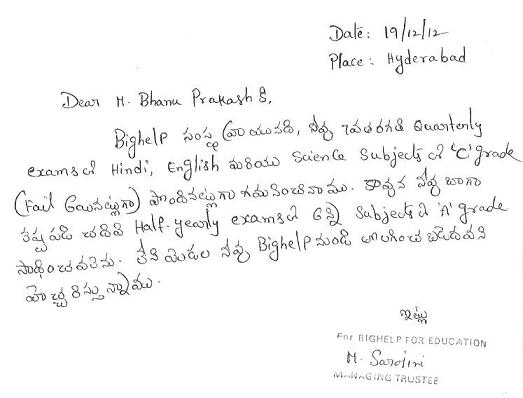 Date: 19/12/12
Place: Hyderabad
Dear M. Bhanu Prakash కి,
Bighelp సంస్థ వ్రాయునది, నీవు 7వతరగతి Quarterly
exams లో Hindi, English మరియు Science Subjects లో 'C' grade
(Fail అయినట్లుగా) పొందినట్లుగా గమనించినాము. కావున నీవు బాగా
కష్టపడి చదివి Half-yearly exams లో అన్ని Subjects లో 'A' grade
సాధించవలెను. లేని యెడల నీవు Bighelp నుండి తొలగించబడెదవని
హెచ్చరిస్తున్నాము.
ఇట్లు
For BIGHELP FOR EDUCATION
M. Sarojini
MANAGING TRUSTEE